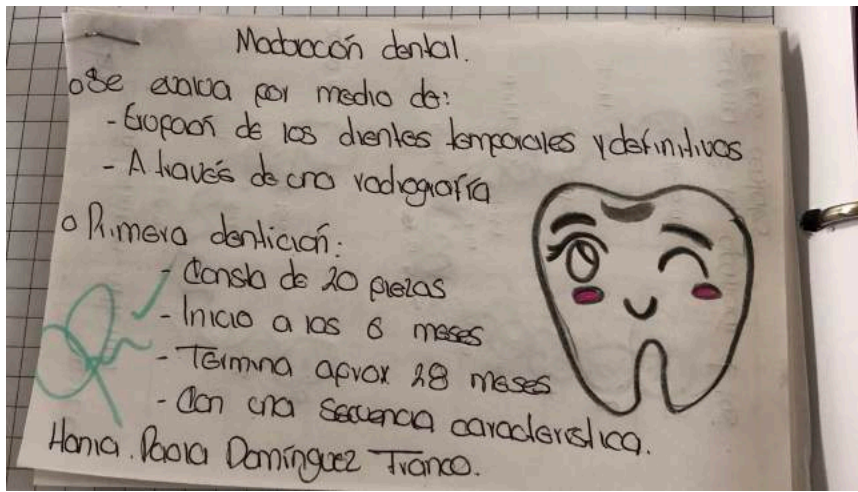 Maduración dental.
o Se evalua por medio de:
- Erupción de los dientes temporales y definitivos
- A través de una radiografía
o Primera dentición:
- Consta de 20 piezas
- Inicio a los 6 meses
- Termina aprox 28 meses
- Con una secuencia característica.
Hania. Paola Domínguez Franco.